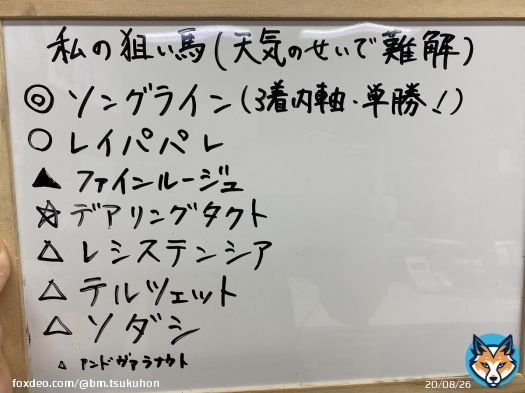 私の狙い馬(天気のせいで難解)
◎ ソングライン(3着内軸・単勝!)
○ レイパパレ
▲ ファインルージュ
☆ デアリングタクト
△ レシステンシア
△ テルツェット
△ ソダシ
△ アンドヴァラナウト
foxdeo.com/@bm.tsukuhon
20/08/26